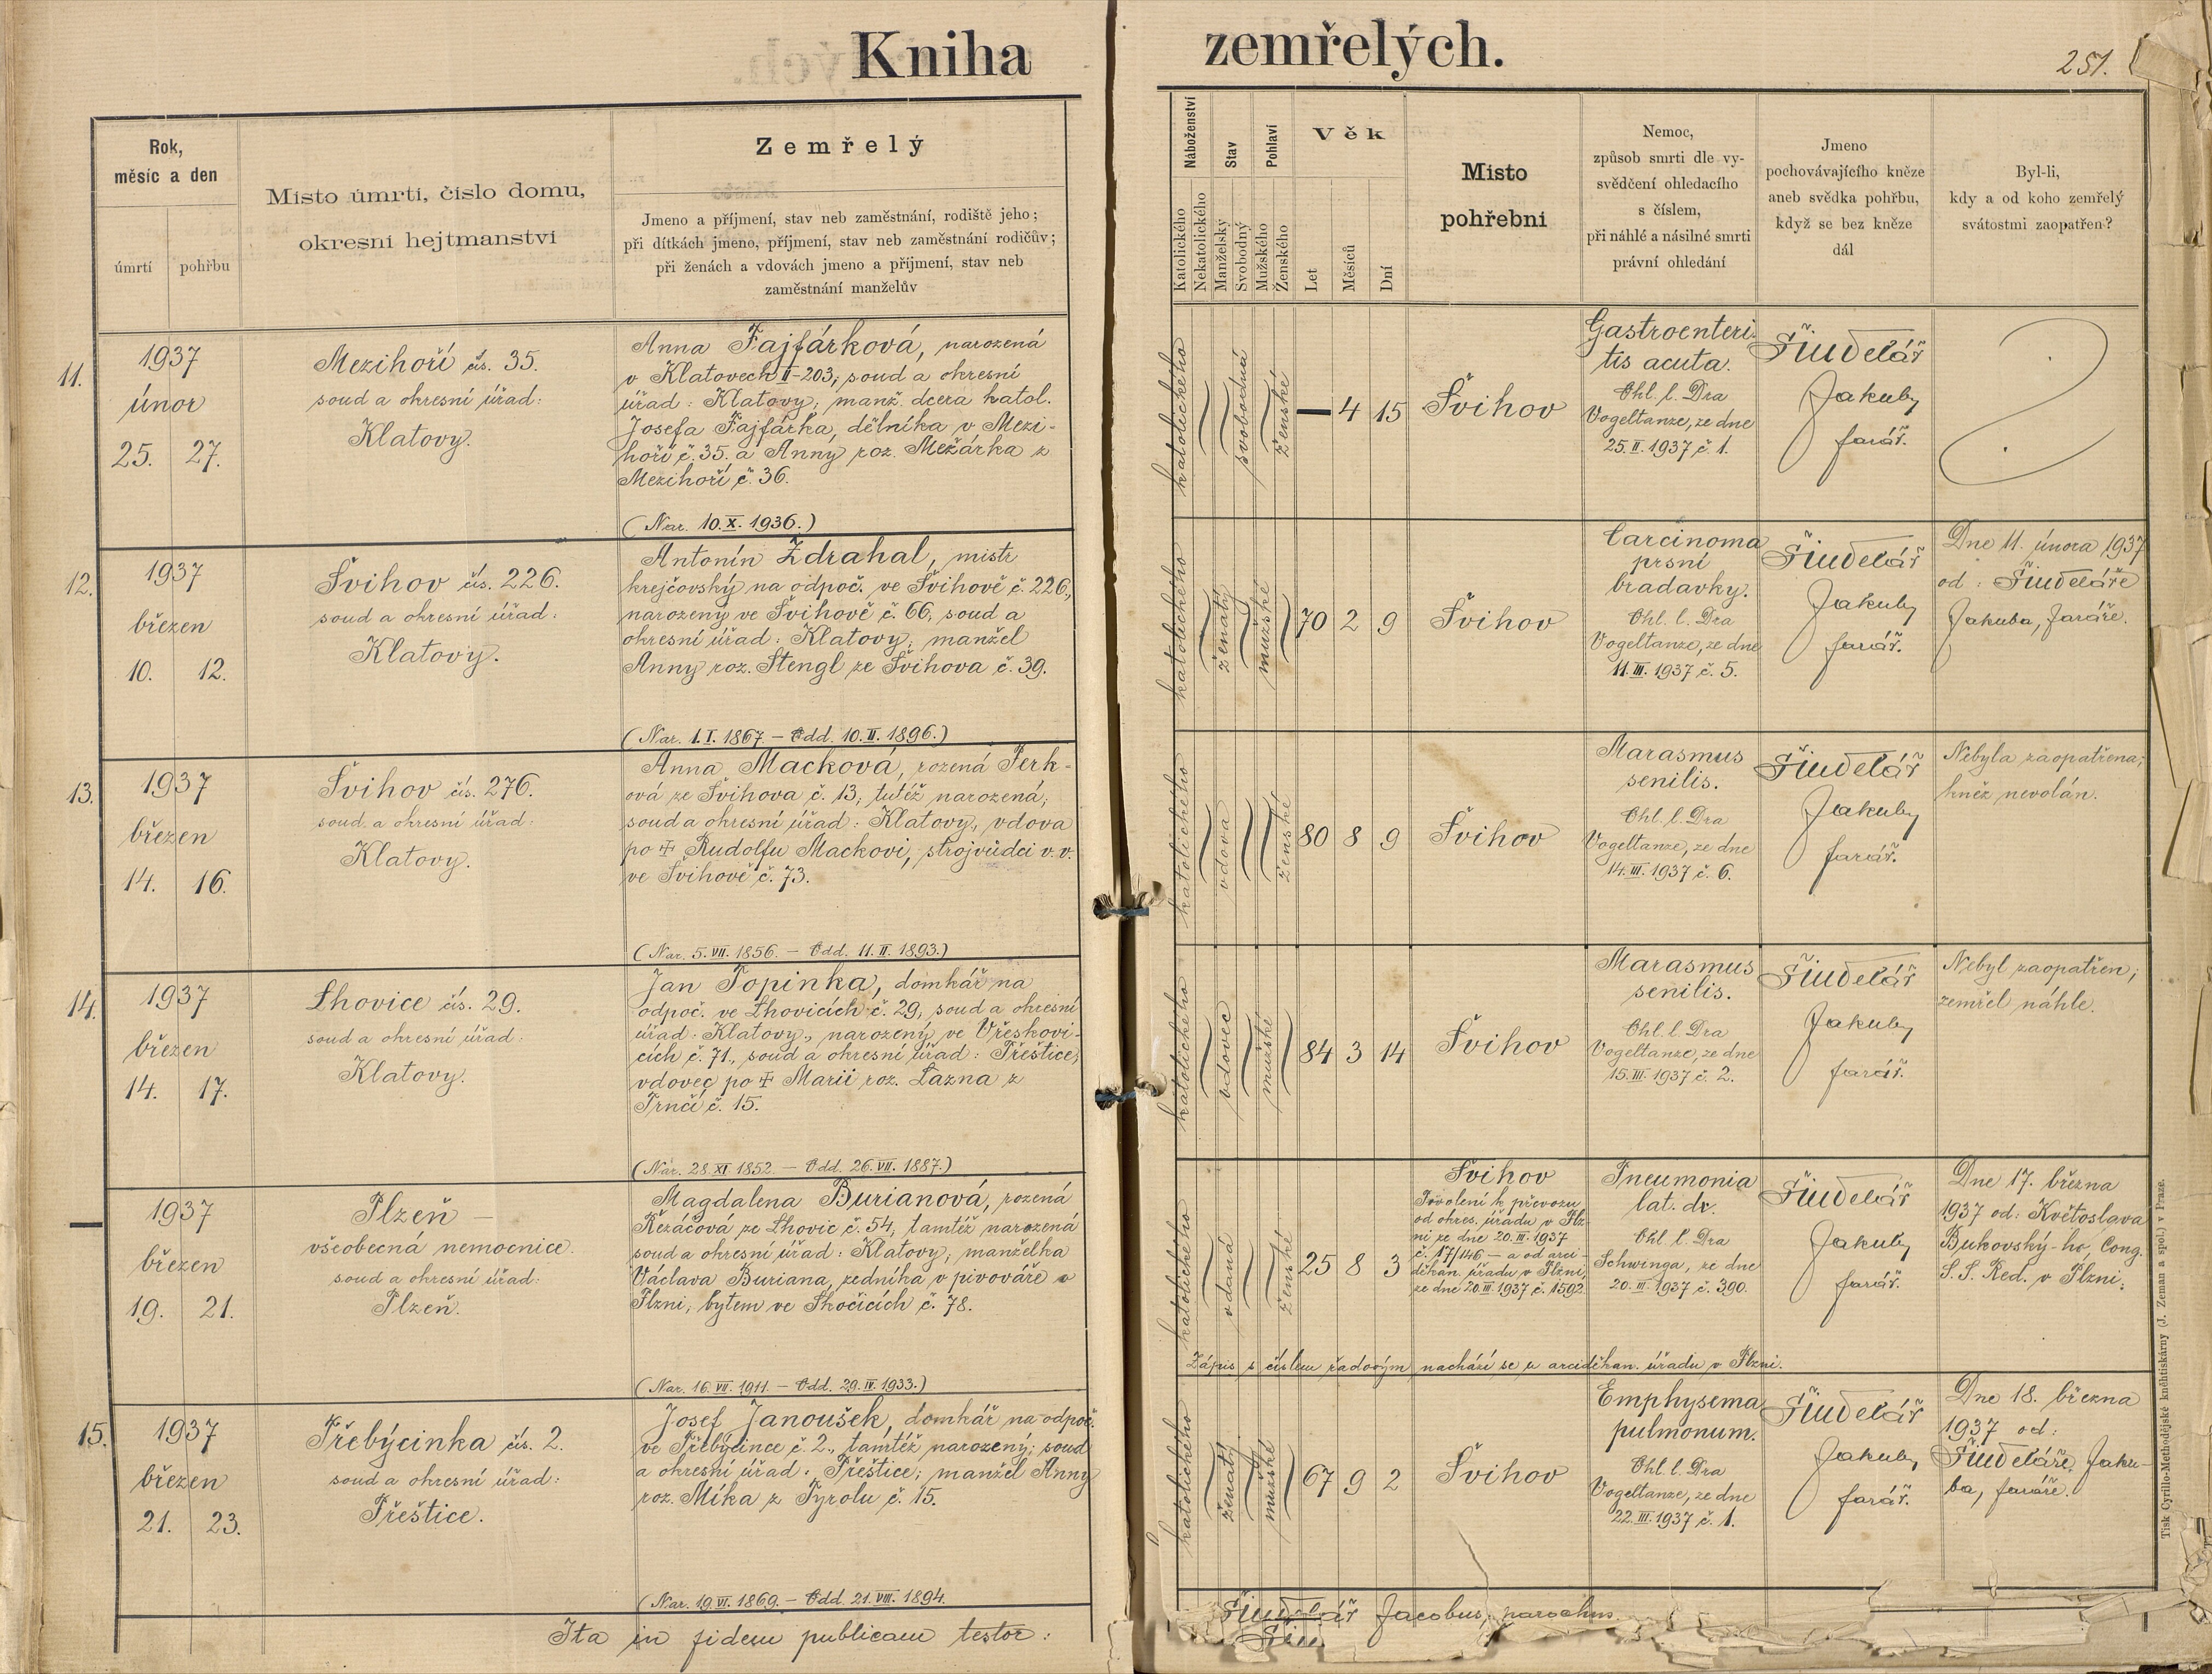 Kniha zemřelých.
251.
Rok,
měsíc a den
úmrtí pohřbu
Misto úmrtí, číslo domu,
okresní hejtmanství
Zemřelý
Jmeno a příjmení, stav neb zaměstnání, rodiště jeho;
při dítkách jmeno, příjmení, stav neb zaměstnání rodičův;
při ženách a vdovách jmeno a příjmení, stav neb
zaměstnání manželův
Náboženství
Katolického
Nekatolického
Stav
Manželský
Svobodný
Pohlaví
Mužského
Ženského
Věk
Let
Měsíců
Dní
Misto
pohřební
Nemoc,
způsob smrti dle vy-
svědčení ohledacího
s číslem,
při náhlé a násilné smrti
právní ohledání
Jmeno
pochovávajícího kněze
aneb svědka pohřbu,
když se bez kněze
dál
Byl-li,
kdy a od koho zemřelý
svátostmi zaopatřen?
11.
1937
únor
25. 27.
Mezihoří čís. 35.
soud a okresní úřad:
Klatovy.
Anna Fajfárková, narozená
v Klatovech II-203; soud a okresní
úřad: Klatovy; manž. dcera katol.
Josefa Fajfárka, dělníka v Mezi-
hoří č. 35. a Anny roz. Mežárka z
Mezihoří č. 36.
(Nar. 10. X. 1936.)
katolického
svobodná
ženské
— 4 15
Švihov
Gastroenteri-
tis acuta.
Ohl. l. Dra
Vogeltanze, ze dne
25. II. 1937 č. 1.
Šindelář
Jakub,
farář.
12.
1937
březen
10. 12.
Švihov čís. 226.
soud a okresní úřad:
Klatovy.
Antonín Zdrahal, mistr
krejčovský na odpoč. ve Švihově č. 226,
narozený ve Švihově č. 66, soud a
okresní úřad: Klatovy; manžel
Anny roz. Stengl ze Švihova č. 39.
(Nar. 1. I. 1867 – Odd. 10. II. 1896.)
katolického
ženatý
mužské
70 2 9
Švihov
Carcinoma
prsní
bradavky.
Ohl. l. Dra
Vogeltanze, ze dne
11. III. 1937 č. 5.
Šindelář
Jakub,
farář.
Dne 11. února 1937
od: Šindeláře
Jakuba, faráře.
13.
1937
březen
14. 16.
Švihov čís. 276.
soud a okresní úřad:
Klatovy.
Anna Macková, rozená Perk-
ová ze Švihova č. 13, tutéž narozená;
soud a okresní úřad: Klatovy, vdova
po ✝ Rudolfu Mackovi, strojvůdci v. v.
ve Švihově č. 73.
(Nar. 5. VII. 1856. – Odd. 11. II. 1893.)
katolického
vdova
ženské
80 8 9
Švihov
Marasmus
senilis.
Ohl. l. Dra
Vogeltanze, ze dne
14. III. 1937 č. 6.
Šindelář
Jakub,
farář.
Nebyla zaopatřena;
kněz nevolán.
14.
1937
březen
14. 17.
Lhovice čís. 29.
soud a okresní úřad:
Klatovy.
Jan Topinka, domkář na
odpoč. ve Lhovicích č. 29, soud a okresní
úřad: Klatovy, narozený ve Vřeskovi-
cích č. 71., soud a okresní úřad: Přeštice,
vdovec po ✝ Marii roz. Lazna z
Trnčí č. 15.
(Nar. 28. XI 1852. – Odd. 26. VII. 1887.)
katolického
vdovec
mužské
84 3 14
Švihov
Marasmus
senilis.
Ohl. l. Dra
Vogeltanze, ze dne
15. III. 1937 č. 2.
Šindelář
Jakub,
farář.
Nebyl zaopatřen;
zemřel náhle.
—
1937
březen
19. 21.
Plzeň –
všeobecná nemocnice.
soud a okresní úřad:
Plzeň.
Magdalena Burianová, rozená
Řezáčová ze Lhovic č. 54, tamtéž narozená
soud a okresní úřad: Klatovy; manželka
Václava Buriana, zedníka v pivováře v
Plzni, bytem ve Skočicích č. 78.
(Nar. 16. VII. 1911. – Odd. 29. IV. 1933.)
katolického
vdaná
ženské
25 8 3
Švihov
Svolení k převozu
od okres. úřadu v Plz-
ni ze dne 20. III. 1937
č. 17/146 – a od arci-
děkan. úřadu v Plzni,
ze dne 20. III. 1937 č. 1592.
Pneumonia
lat. dx.
Ohl. l. Dra
Schwinga, ze dne
20. III. 1937 č. 390.
Šindelář
Jakub,
farář.
Dne 17. března
1937 od: Květoslava
Bukovský-ho, Cong.
S. S. Red. v Plzni.
Zápis s číslem řadovým nachází se u arciděkan. úřadu v Plzni.
15.
1937
březen
21. 23.
Třebýcinka čís. 2.
soud a okresní úřad:
Přeštice.
Josef Janoušek, domkář na odpoč.
ve Třebýcince č. 2., tamtéž narozený; soud
a okresní úřad: Přeštice; manžel Anny
roz. Míka z Tyrolu č. 15.
(Nar. 19. VI. 1869. – Odd. 21. VIII. 1894.
katolického
ženatý
mužské
67 9 2
Švihov
Emphysema
pulmonum.
Ohl. l. Dra
Vogeltanze, ze dne
22. III. 1937 č. 1.
Šindelář
Jakub,
farář.
Dne 18. března
1937 od:
Šindeláře Jaku-
ba, faráře.
Ita in fidem publicam testor:
Šindelář Jacobus, parochus.
Tisk Cyrillo-Methodějské knihtiskárny (J. Zeman a spol.) v Praze.